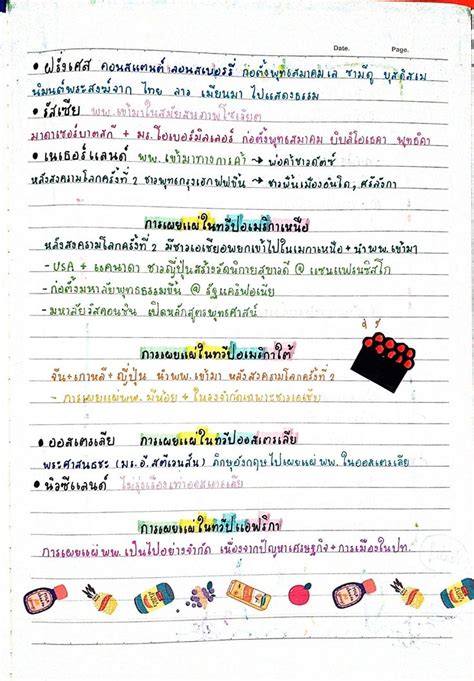 Date. Page.
• ฝรั่งเศส คอนสแตนต์ ลอนสเบอร์รี่ ก่อตั้งพุทธสมาคม เล ซามีดู บุสดิสเม
นิมนต์พระสงฆ์จาก ไทย ลาว เมียนมา ไปแสดงธรรม
• รัสเซีย พพ.เข้ามาในสมัยสหภาพโซเวียต
มาดามเซอร์บาตสกี + มร.โอเบอร์มิลเลอร์ ก่อตั้งพุทธสมาคม บิบลิโอเธคา พุทธิคา
• เนเธอร์แลนด์ พพ.เข้ามาทางการค้า → พ่อค้าชาวดัตช์
หลังสงครามโลกครั้งที่ 2 ชาวพุทธกรุงเฮกฟูขึ้น → ชาวพื้นเมืองอินโด, ศรีลังกา
การเผยแผ่ในทวีปอเมริกาเหนือ
หลังสงครามโลกครั้งที่ 2 มีชาวเอเชียอพยพเข้าไปในเมกาเหนือ + นำพพ.เข้ามา
- USA + แคนาดา ชาวญี่ปุ่นสร้างวัดนิกายสุขาวดี @ แซนแฟรนซิสโก
- ก่อตั้งมหาลัยพุทธธรรมขึ้น @ รัฐแคริฟอเนีย
- มหาลัยวิสคอนซิน เปิดหลักสูตรพุทธศาสน์
การเผยแผ่ในทวีปอเมริกาใต้
จีน + เกาหลี + ญี่ปุ่น นำพพ.เข้ามา หลังสงครามโลกครั้งที่ 2
- การเผยแผ่พพ. มีน้อย + ในวงจำกัดเฉพาะชาวเอเชีย
• ออสเตรเลีย การเผยแผ่ในทวีปออสเตรเลีย
พระศาสนธชะ (มร.อี.สตีเวนสัน) ภิกษุอังกฤษไปเผยแผ่ พพ.ในออสเตรเลีย
• นิวซีแลนด์ ไม่รุ่งเรืองเท่าออสเตรเลีย
การเผยแผ่ในทวีปแอฟริกา
การเผยแผ่ พพ.เป็นไปอย่างจำกัด เนื่องจากปัญหาเศรษฐกิจ + การเมืองในปท.